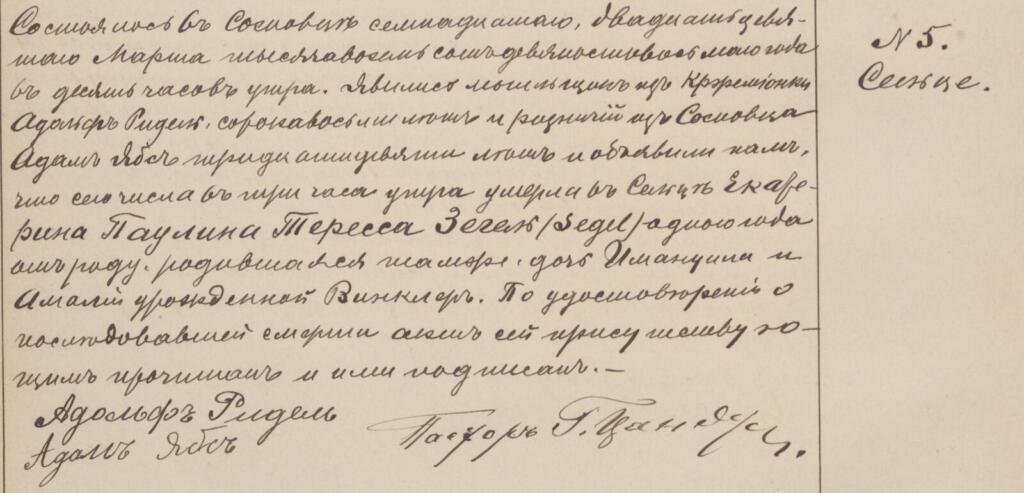 Состоялось въ Сосновцахъ семнадцатаго, двадцать девя-
таго Марта тысяча восемь сотъ девяностовосьмаго года
въ десять часовъ утра. Явились мыльщикъ изъ
Адольфъ Ридель, сорокавосьми лѣтъ и рѣзничій изъ Сосновца
Адамъ Ябсъ тридцатидевяти лѣтъ и объявили намъ,
что сего числа въ три часа утра умерла въ Сельцѣ Екате-
рина Паулина Тересса Зегель (Segel) одного года
отъ роду, родившаяся тамже, дочь Имануила и
Амаліи урожденной Винклеръ. По удостовѣреніи о
послѣдовавшей смерти актъ сей присутству ю-
щимъ прочитанъ и ими подписанъ. —
Адольфъ Ридель
Адамъ Ябсъ
Пасторъ Г. Цандеръ.
N 5.
Сельце.